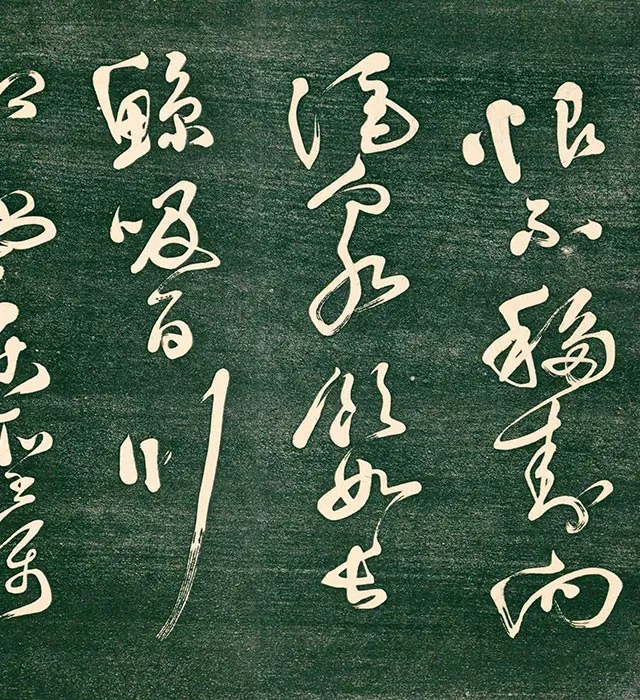 恨不移封向
酒泉飲如長
鯨吸百川